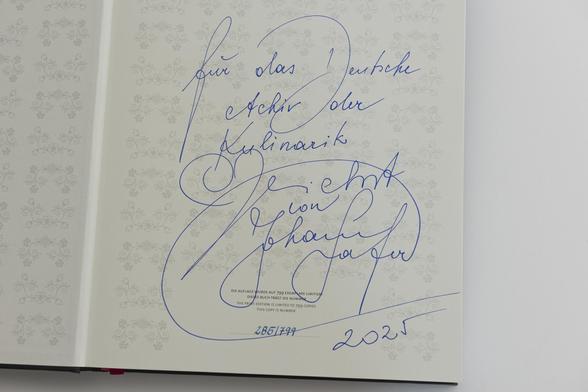 für das Deutsche
Achiv der
Kulinarik
von
Johann
Lafer
DIE AUFLAGE WURDE AUF 799 EXEMPLARE LIMITIERT
DIESES BUCH TRÄGT DIE NUMMER
THE PRINT EDITION IS LIMITED TO 799 COPIES
THIS COPY IS NUMBER
286/799
2025